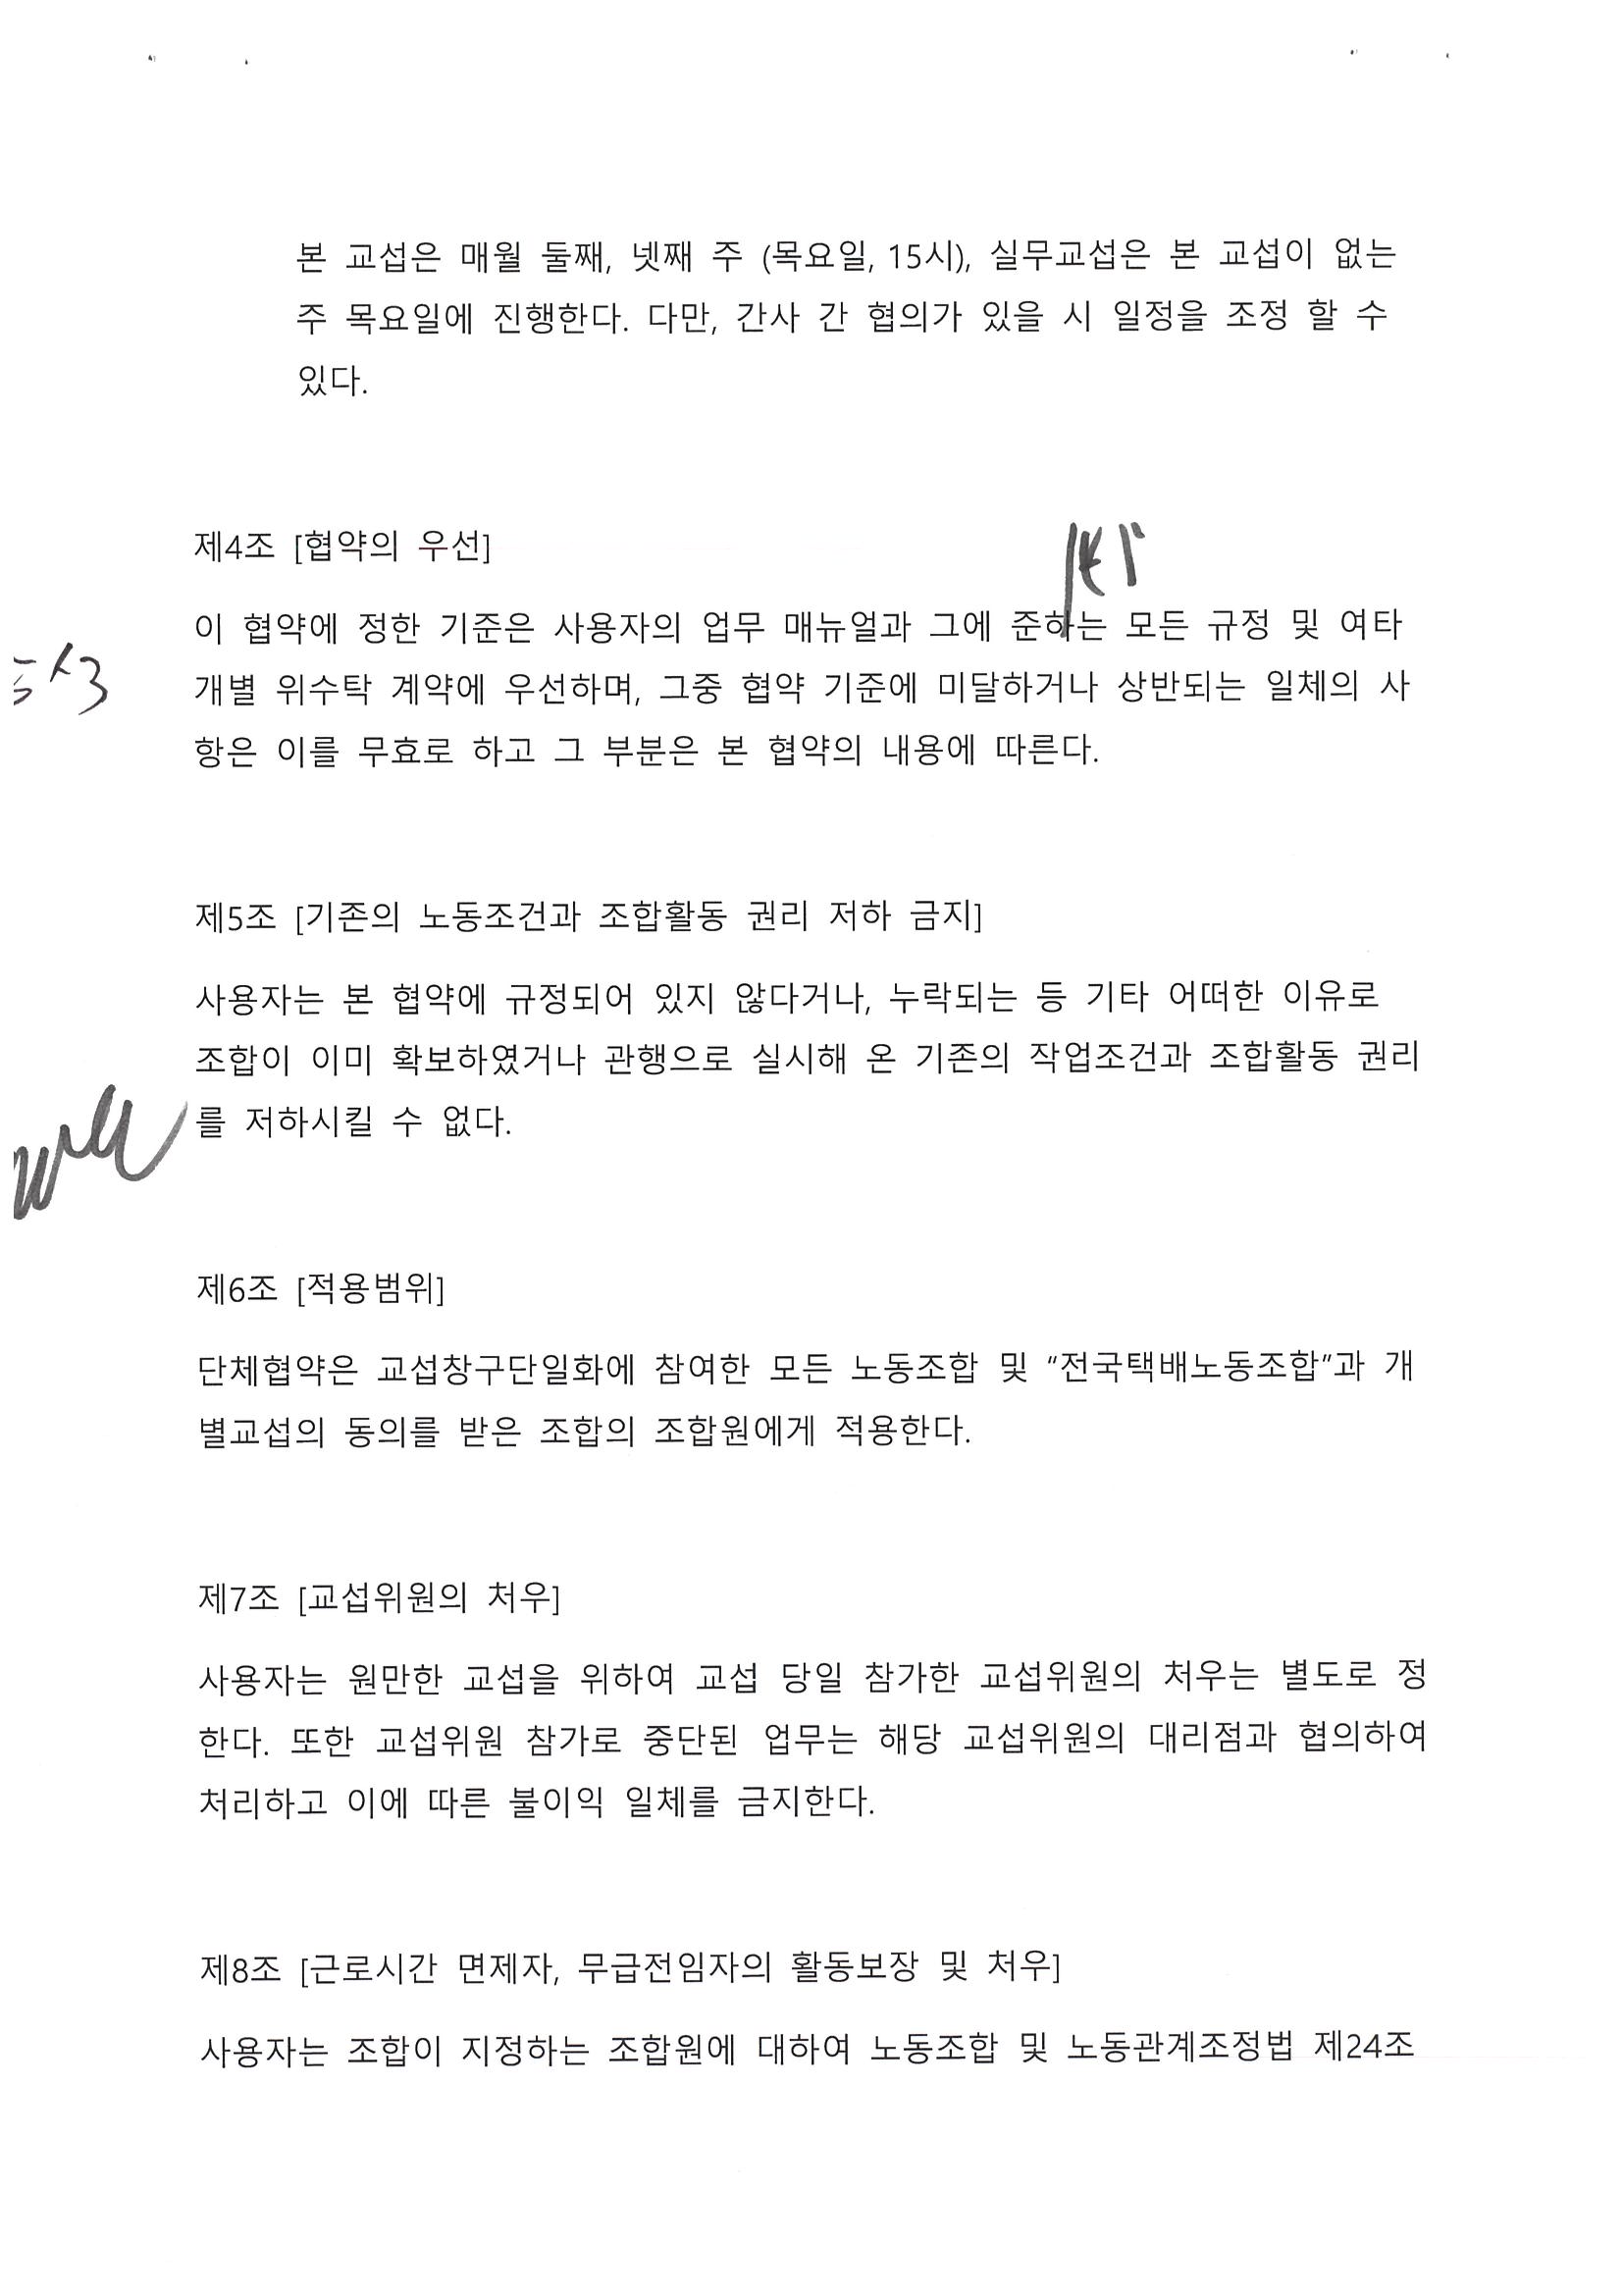 본 교섭은 매월 둘째, 넷째 주 (목요일, 15시), 실무교섭은 본 교섭이 없는
주 목요일에 진행한다. 다만, 간사 간 협의가 있을 시 일정을 조정 할 수
있다.
제4조 [협약의 우선]
이 협약에 정한 기준은 사용자의 업무 매뉴얼과 그에 준하는 모든 규정 및 여타
개별 위수탁 계약에 우선하며, 그중 협약 기준에 미달하거나 상반되는 일체의 사
항은 이를 무효로 하고 그 부분은 본 협약의 내용에 따른다.
제5조 [기존의 노동조건과 조합활동 권리 저하 금지]
사용자는 본 협약에 규정되어 있지 않다거나, 누락되는 등 기타 어떠한 이유로
조합이 이미 확보하였거나 관행으로 실시해 온 기존의 작업조건과 조합활동 권리
를 저하시킬 수 없다.
제6조 [적용범위]
단체협약은 교섭창구단일화에 참여한 모든 노동조합 및 “전국택배노동조합”과 개
별교섭의 동의를 받은 조합의 조합원에게 적용한다.
제7조 [교섭위원의 처우]
사용자는 원만한 교섭을 위하여 교섭 당일 참가한 교섭위원의 처우는 별도로 정
한다. 또한 교섭위원 참가로 중단된 업무는 해당 교섭위원의 대리점과 협의하여
처리하고 이에 따른 불이익 일체를 금지한다.
제8조 [근로시간 면제자, 무급전임자의 활동보장 및 처우]
사용자는 조합이 지정하는 조합원에 대하여 노동조합 및 노동관계조정법 제24조